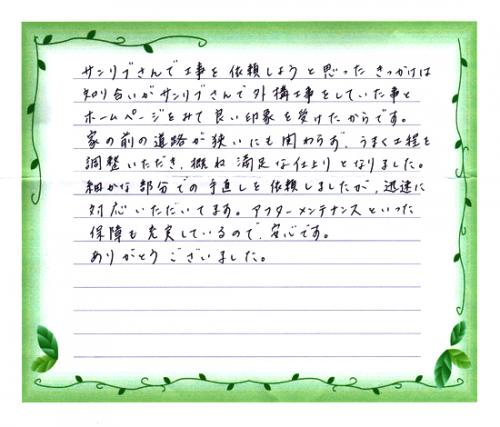 サンリブさんで工事を依頼しようと思ったきっかけは
知り合いがサンリブさんで外構工事をしていた事と
ホームページをみて良い印象を受けたからです。
家の前の道路が狭いにも関わらず、うまく工程を
調整いただき、概ね満足な仕上りとなりました。
細かな部分での手直しを依頼しましたが、迅速に
対応いただいてます。アフターメンテナンスといった
保障も充実しているので、安心です。
ありがとうございました。